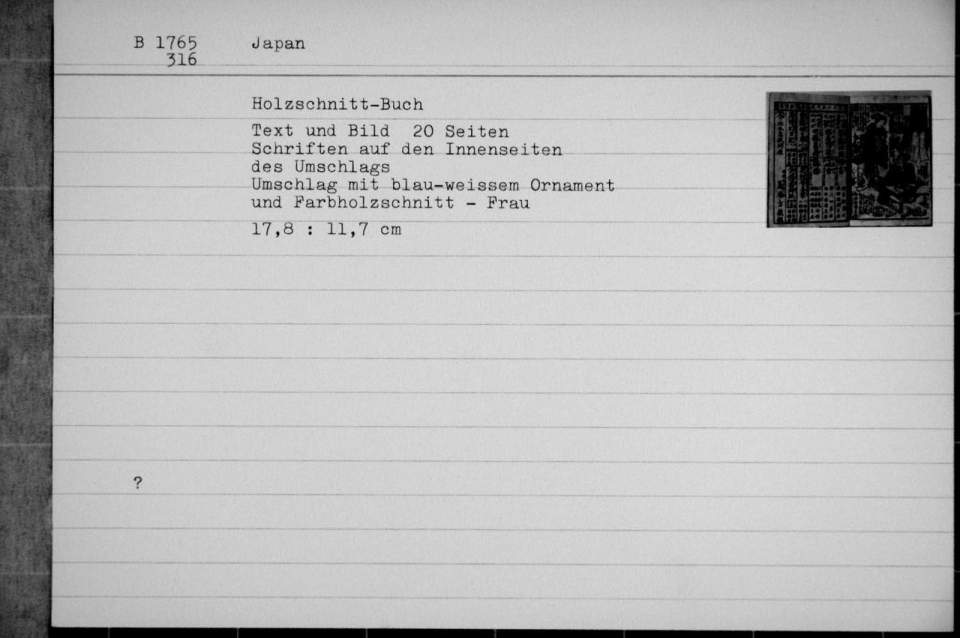 B 1765 Japan
316
Holzschnitt-Buch
Text und Bild 20 Seiten
Schriften auf den Innenseiten
des Umschlags
Umschlag mit blau-weissem Ornament
und Farbholzschnitt - Frau
17,8 : 11,7 cm
?